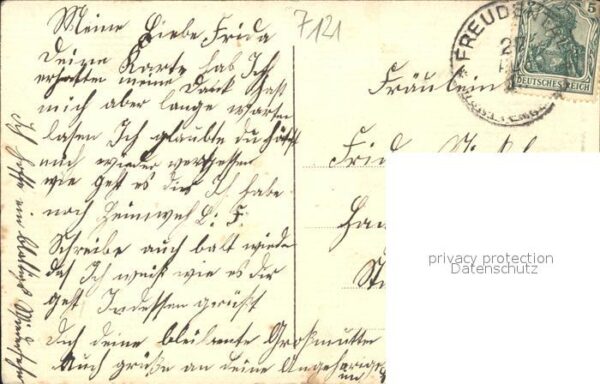 7121
Meine Liebe Frida
Deine Karte hab Ich
erhalten meine Dank hast
mich aber lange warten
lasen Ich glaubte du häst
mich wieder vergessen
wie get es dir Ich habe
noch Heimweh L. F.
Schreibe auch balt wieder
das Ich weiß wie es dir
get Indessen grüßt
Dich deine bleibente Großmutter
Auch grüße an deine Angehörige
Ich hoffe ein baltiges Wiedersehn
FREUDEN
5
DEUTSCHES REICH
Fräulein
Frida
privacy protection
Datenschutz